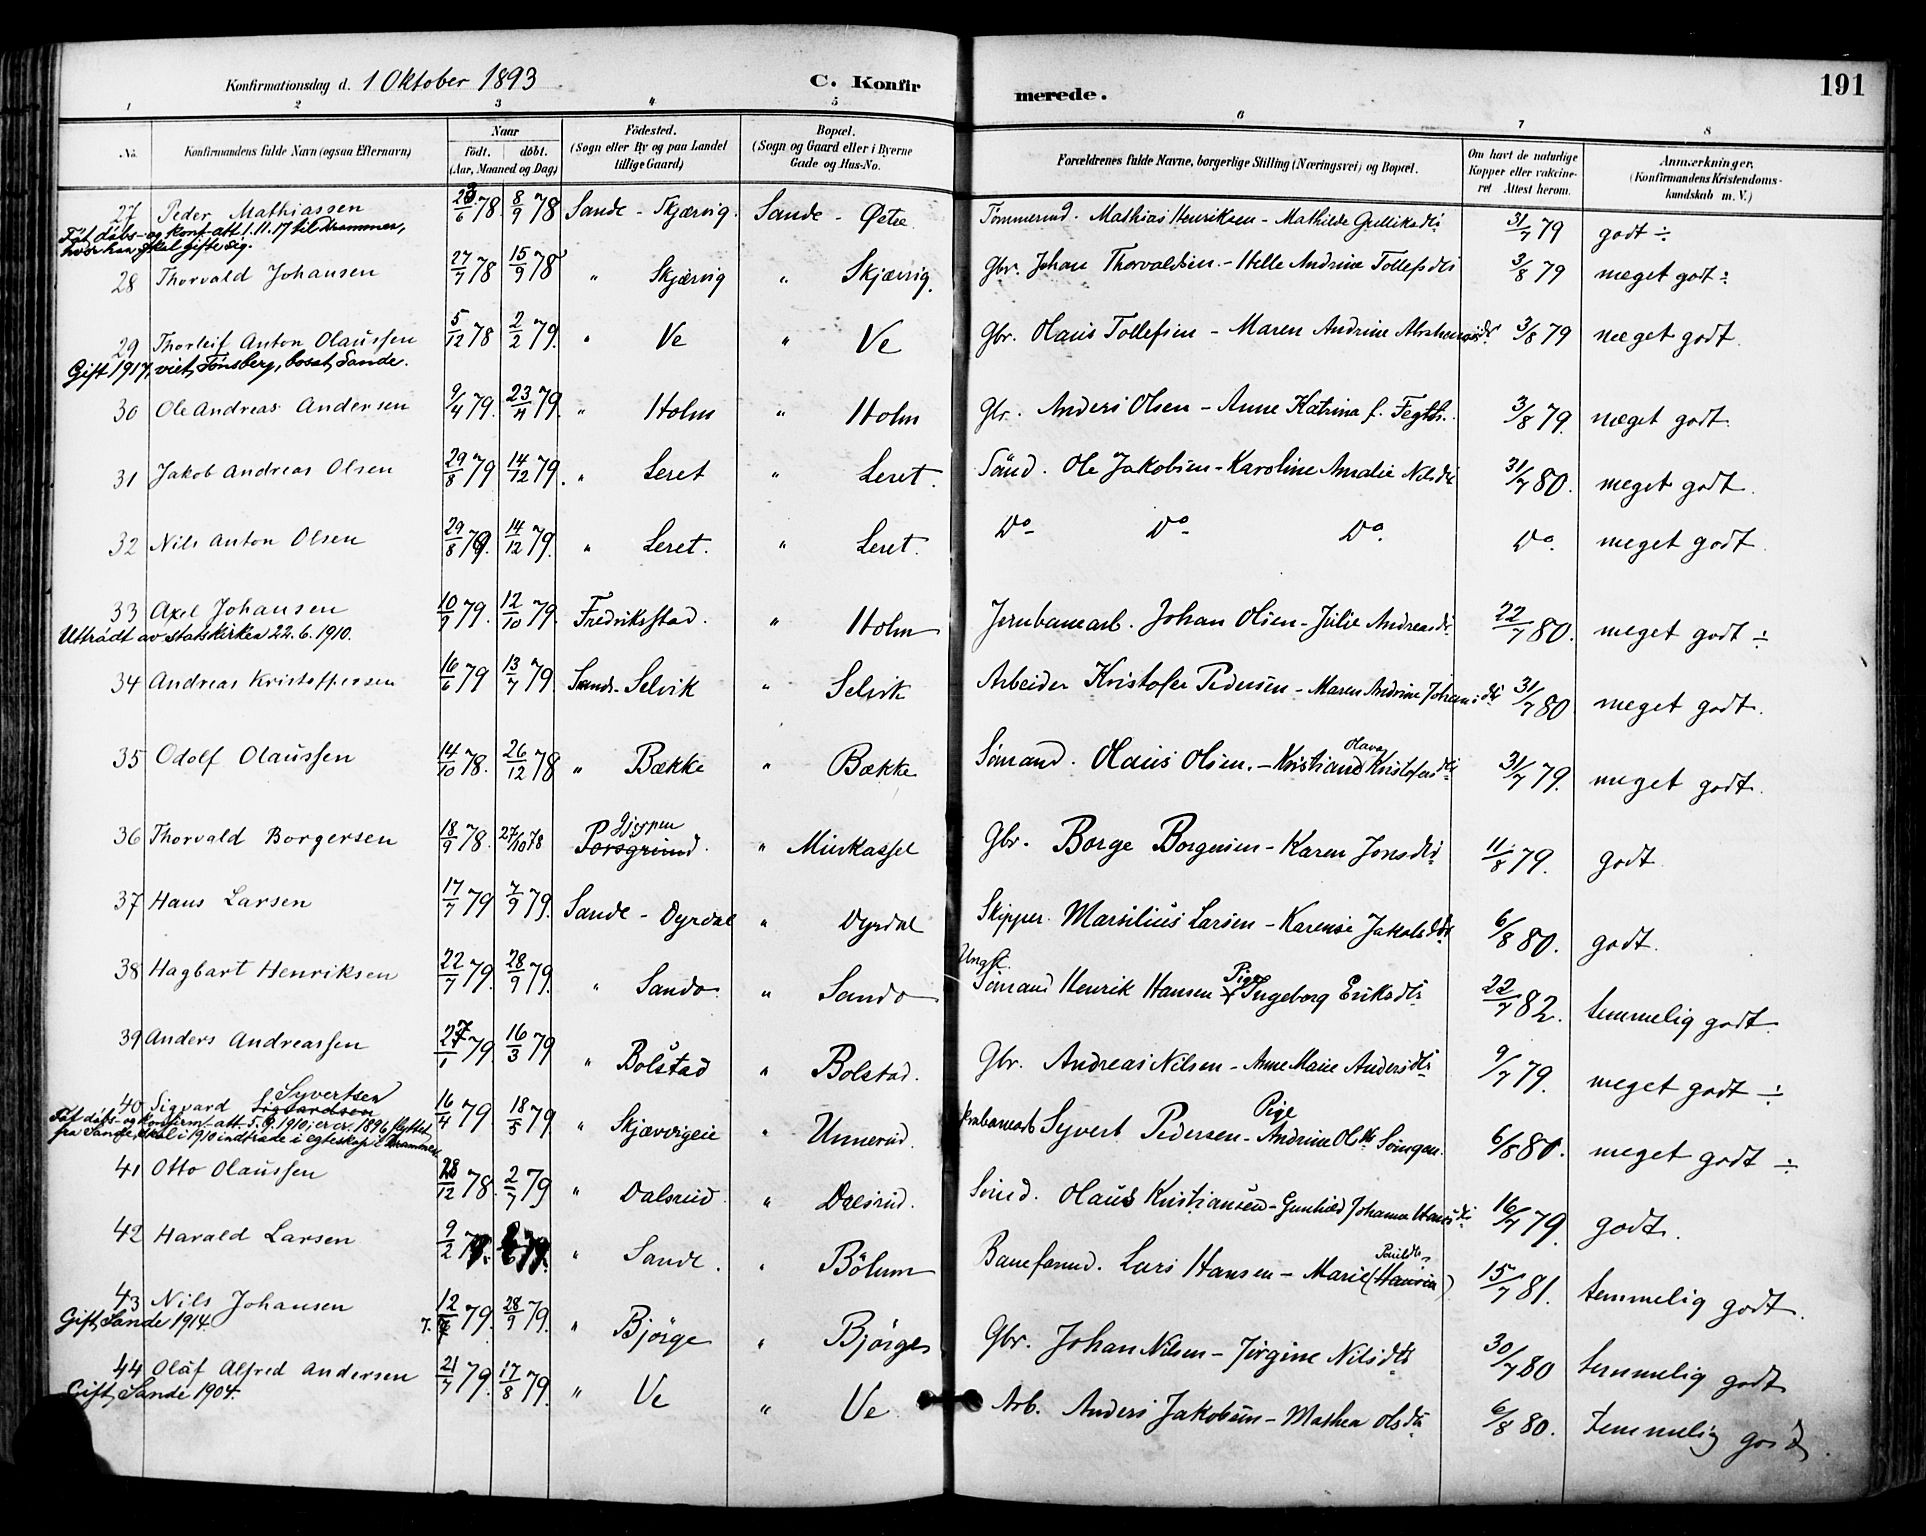 Konfirmationsdag d. 1 Oktober 1893
C. Konfir
merede.
191
1 2 3 4 5 6 7 8
No. Konfirmandens fulde Navn (ogsaa Efternavn) Naar Födt. döbt. (Aar, Maaned og Dag) Födested. (Sogn eller By og paa Landet tillige Gaard) Bopæl. (Sogn og Gaard eller i Byerne Gade og Hus-No. Forældrenes fulde Navne, borgerlige Stilling (Næringsvei) og Bopæl. Om havt de naturlige Kopper eller vakcineret Attest herom. Anmærkninger. (Konfirmandens Kristendomskundskab m. V.)
27 Peder Mathiassen 6 78. 8/9 78 Sande - Skjærvig. Sande - Mathias Henriksen - Mathilde Gulliksdtr 31/7 79 godt ÷
Fåt dåbs- og konf. att. 1.11.17 til Drammen, hvor han skal gifte sig.
28 Thorvald Johansen 27/7 78 15/9 78 " Skjærvig " Skjærvig. Gbr. Johan Thorvaldsen - Helle Andrine Tollefsdtr 3/8 79 meget godt ÷
29 Thorleif Anton Olaussen 5/12 78 2/2 79. " Ve " Ve Gbr. Olaus Tollefsen - Maren Andrine Abrahamsdr 3/8 79 meget godt.
Gift 1917, viet Tønsberg, bosat Sande.
30 Ole Andreas Andersen 9/4 79. 23/4 79. " Holm " Holm Gbr. Anders Olsen - Anne Katrina f. 3/8 79. meget godt.
31 Jakob Andreas Olsen 29/8 79 14/12 79. " Leret " Leret. Sömd. Ole Jakobsen - Karoline Amalie Nilsdtr 31/7 80. meget godt.
32 Nils Anton Olsen 29/8 79. 14/12 79. " Leret. " Leret. Do Do Do. Do. meget godt.
33 Axel Johansen 10/9 79. 12/10 79. Fredriksstad. " Holm Jernbanearb. Johan Olsen - Julie Andreasdtr 22/7 80. meget godt ÷
Uttrådt av statskirken 22.6.1910.
34 Andreas Kristoffersen 16/6 79 13/7 79. Sande - Selvik " Selvik Arbeider Kristofer Pedersen - Maren Andrine Johansdtr 31/7 80 meget godt.
35 Odolf Olaussen 14/10 78. 26/12 78 " Bække " Bække Sömand. Olaus Olsen. - Kristiane Olava Kristofersdtr 31/7 79. meget godt.
36 Thorvald Borgersen 18/9 78. 27/10 78 Porsgrund. Gjerpen " Mierkassel Gbr. Borge Borgersen - Karen Jonsdtr 11/8 79. godt
37 Hans Larsen 17/7 79 7/9 79. Sande - Dyrdal " Dyrdal Skipper. Marsilius Larsen - Karense Jakobsdtr 6/8 80. godt.
38 Hagbart Henriksen 22/7 79. 28/9 79. " Sando " Sando Ungk. Sömand Henrik Hansen + Pige Ingeborg Eriksdtr 22/7 82. temmelig godt.
39 Anders Andreassen 27/1 79. 16/3 79 " Bolstad " Bolstad. Gbr. Andreas Nilsen - Anne Marie Andersdtr 9/7 79. meget godt ÷
40 Sigvard Sigvardsen Syvertsen 16/4 79. 18/5 79. " Skjærvigeie " Unnerud. Syvert Pedersen - Pige Andrine 6/8 80. meget godt ÷
Fåt dåbs- og konfirm. att. 5.9.1910; er cr. 1896 flyttet fra Sande, skal i 1910 indtræde i egteskap i Drammen
41 Otto Olaussen 28/12 78. 2/7 79 " Dalsrud. " Dalsrud. Sömd. Olaus Kristiansen - Gunhild Johanne Hansdtr 16/7 79. godt.
42 Harald Larsen 9/2 79. " Sande. " Bölum Lars Hansen - Marie (Hansen) 15/7 81. temmelig godt.
43 Nils Johansen 12 79. 28/9 79. " Bjørge " Bjørge Gbr. Johan Nilsen - Jørgine Nilsdtr 30/7 80 temmelig godt
Gift, Sande 1914. 7.
44 Olaf Alfred Andersen 21/7 79. 17/8 79. " Ve " Ve Arb. Anders Jakobsen - Mathea Olsdtr 6/8 80. temmelig godt.
Gift, Sande 1904.